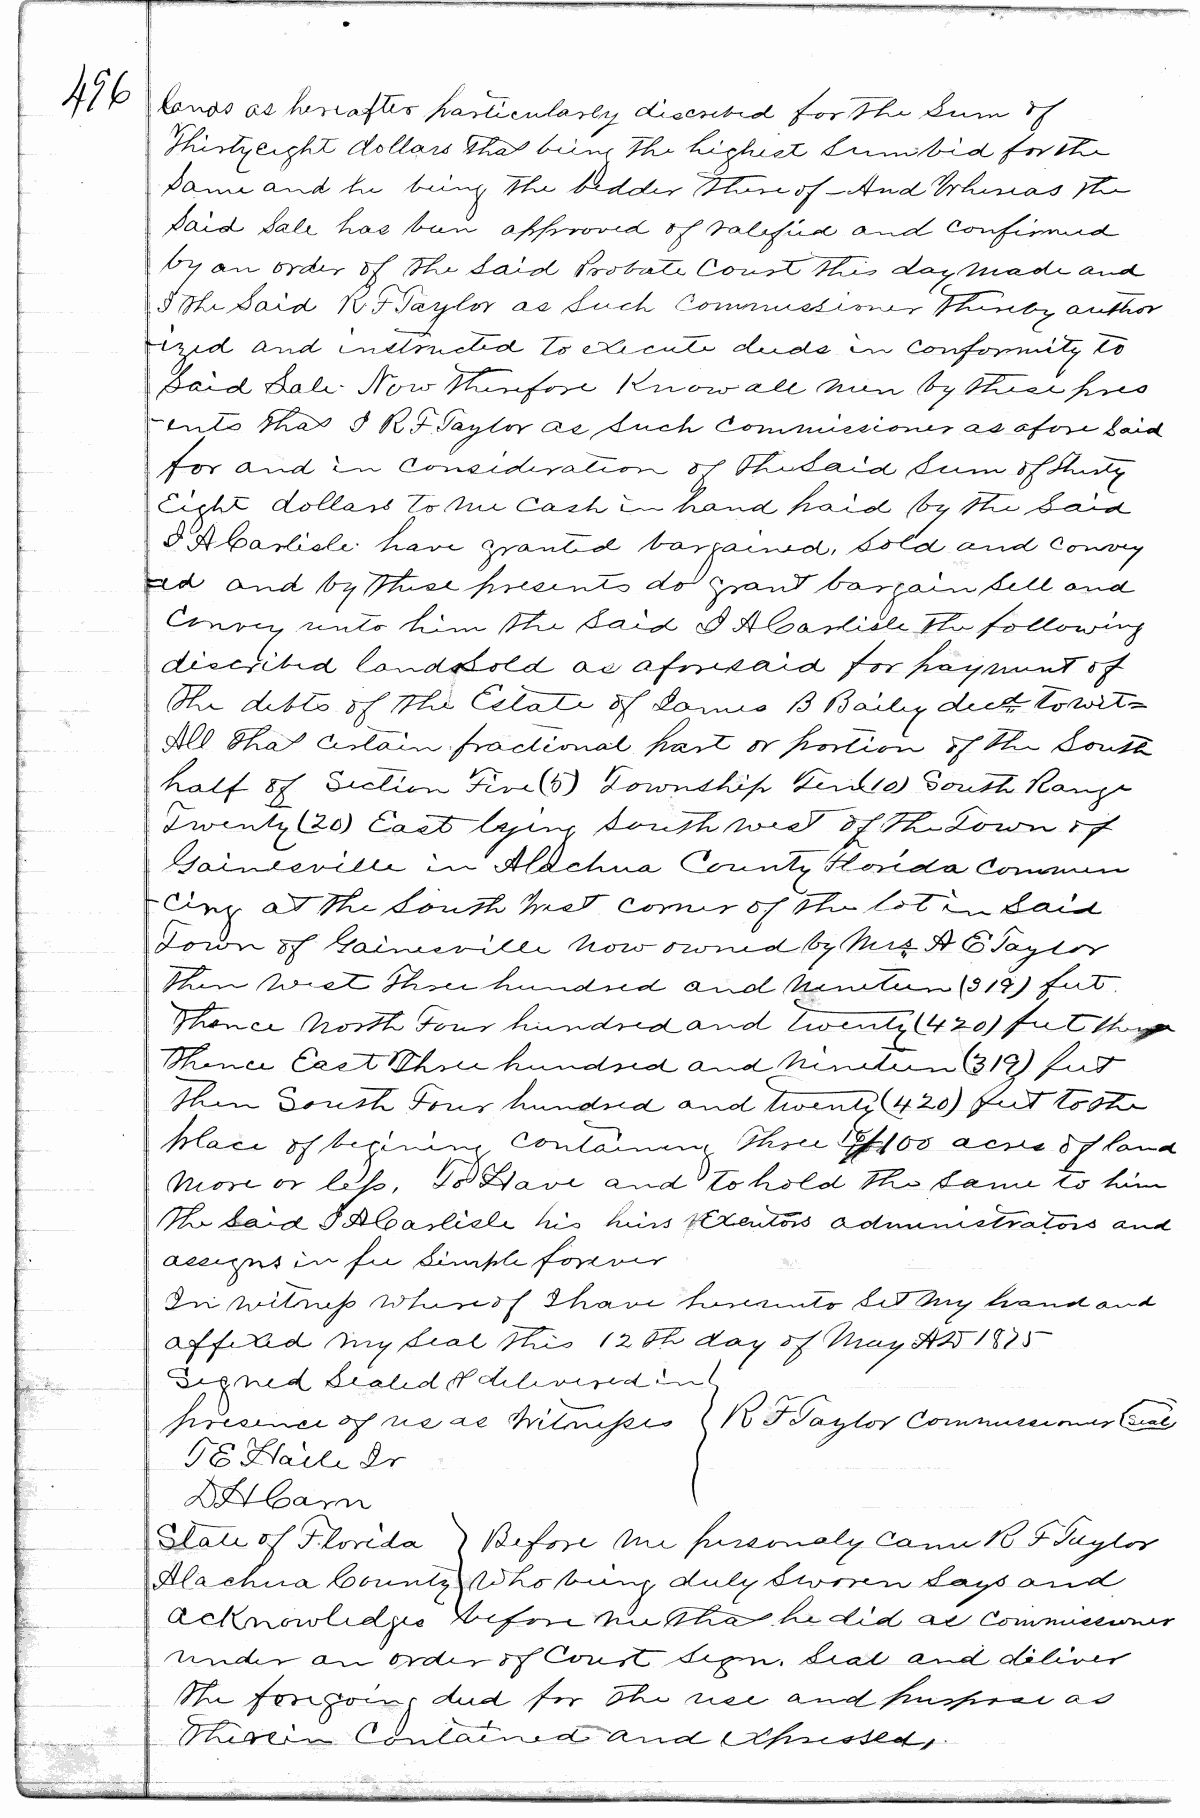 496
lands as hereafter particularly discribed for the Sum of
Thirtyeight dollars that being the highest Sum bid for the
Same and he being the bidder there of - And Whereas the
Said Sale has been approved of ratefied and confirmed
by an order of the Said Probate Court this day made and
I the Said R F Taylor as Such Commissioner thereby author
-ized and instructed to execute deeds in conformity to
Said Sale. Now therefore Know all men by these pres
-ents that I R F Taylor as Such Commissioner as afore Said
for and in consideration of the Said Sum of thirty
Eight dollars to me Cash in hand paid by the Said
I A Carlisle have granted bargained, Sold and convey
ed and by these presents do grant bargain Sell and
Convey unto him the Said I A Carlisle the following
discribed land Sold as aforesaid for payment of
the debts of the Estate of James B Bailey decd to wit=
All that certain fractional part or portion of the South
half of Section Five (5) Township Ten (10) South Range
Twenty (20) East lying South west of the Town of
Gainesville in Alachua County Florida Commen
-cing at the South West corner of the lot in Said
Town of Gainesville now owned by Mrs A E Taylor
then West three hundred and Nineteen (319) feet.
Thence North Four hundred and twenty (420) feet
thence East Three hundred and Nineteen (319) feet
then South Four hundred and twenty (420) feet to the
place of begining containing three /100 acres of land
more or less, To Have and to hold the Same to him
the Said I A Carlisle his heirs Exectors administrators and
assigns in fee Simple forever
In witness whereof I have hereunto Set my hand and
affixed my Seal this 12th day of May AD 1875
Signed Sealed & delivered in
presence of us as Witnesses } R F Taylor Commissioner Seal
T E Haile Jr
D H Carn
State of Florida } Before me personaly came R F Taylor
Alachua County } Who being duly Sworen Says and
acknowledges before me that he did as commissioner
under an order of Court Sign. Seal and deliver
the foregoing deed for the use and purpose as
therein Contained and expressed,